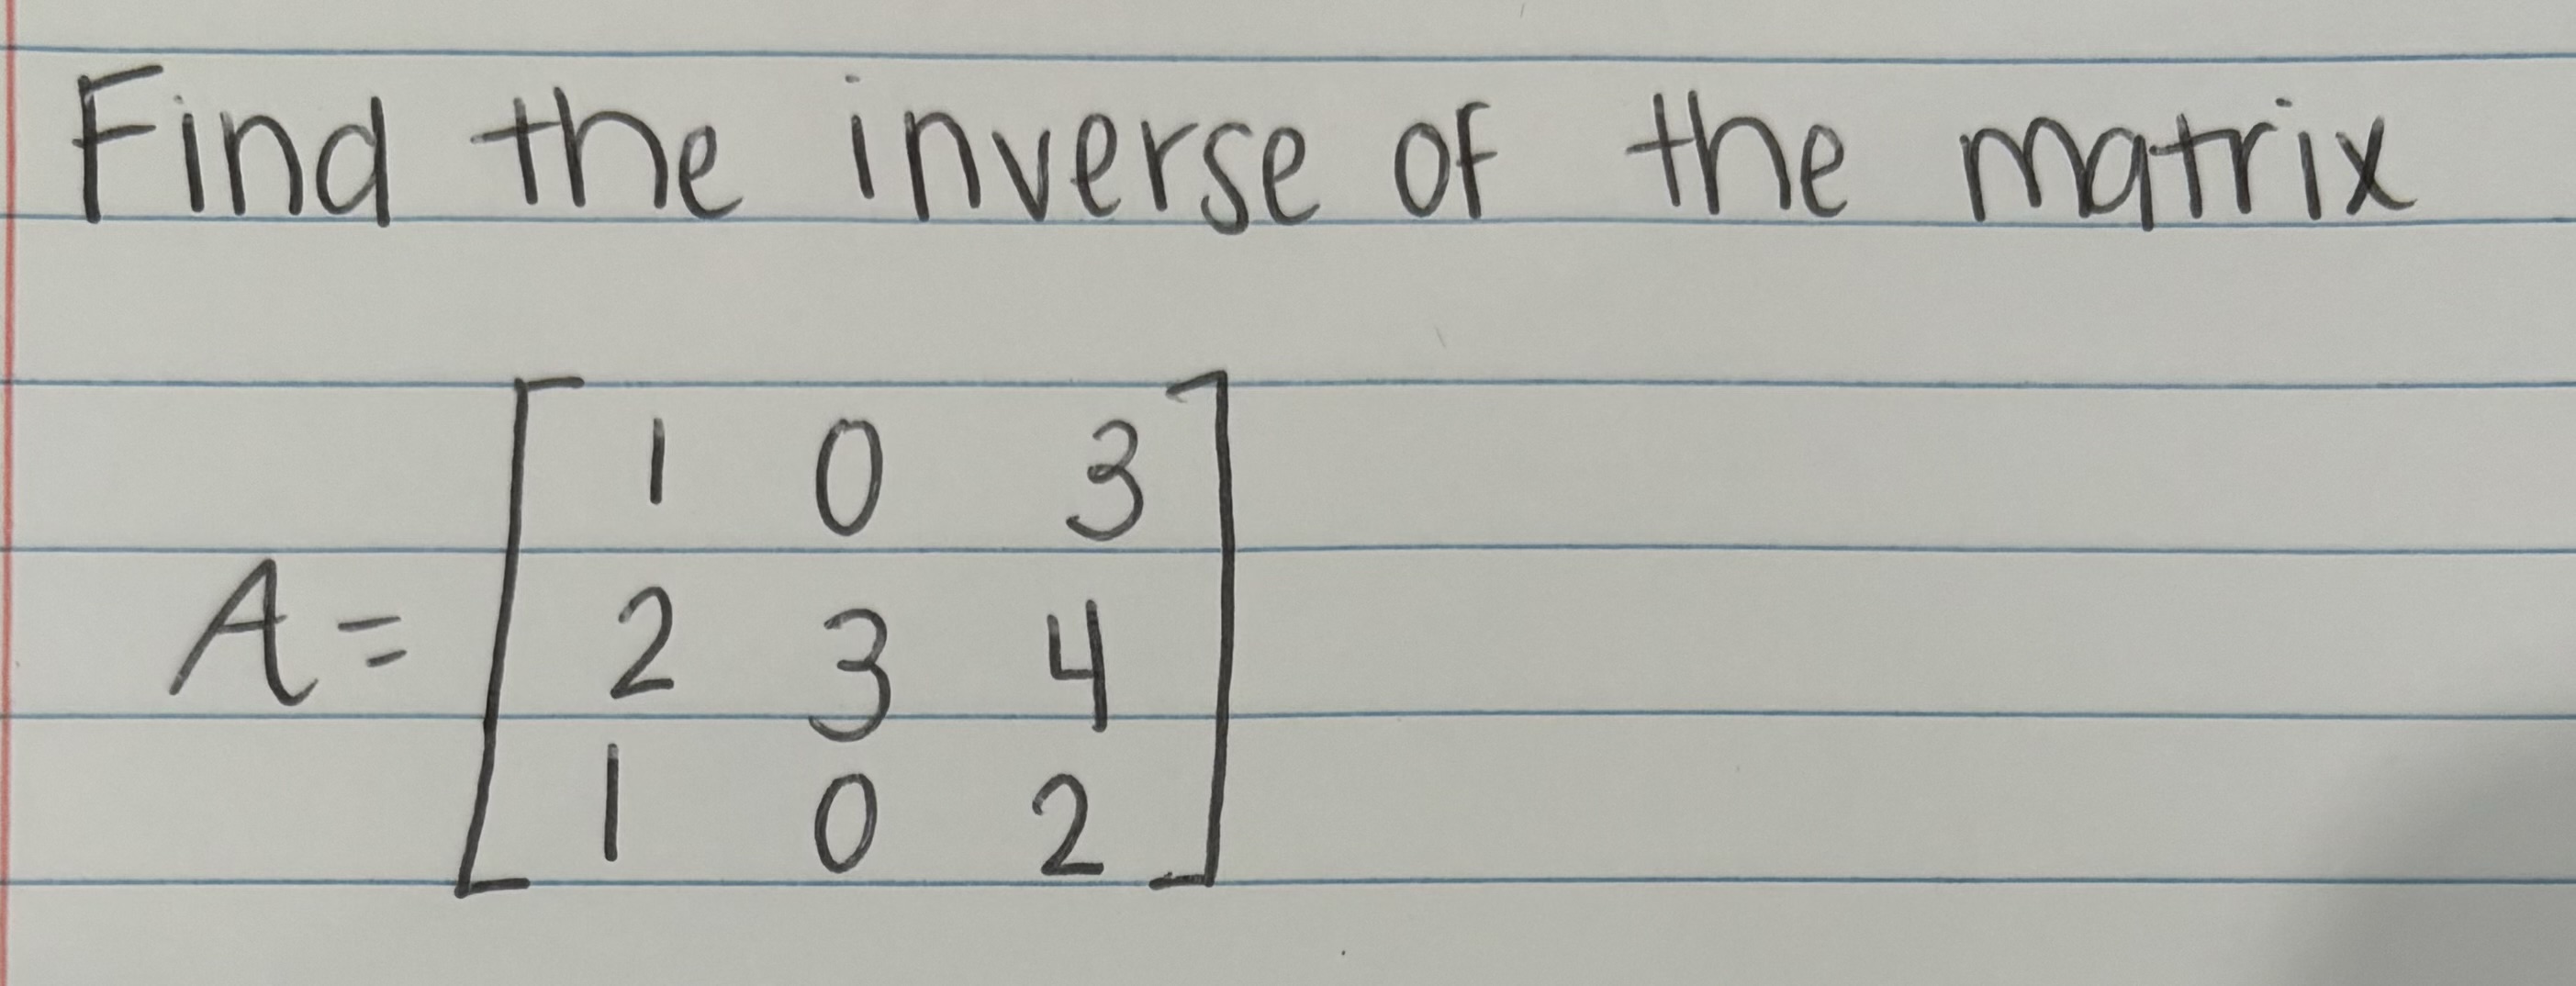 Find the inverse of the matrix
A = [1 0 3
2 3 4
1 0 2]